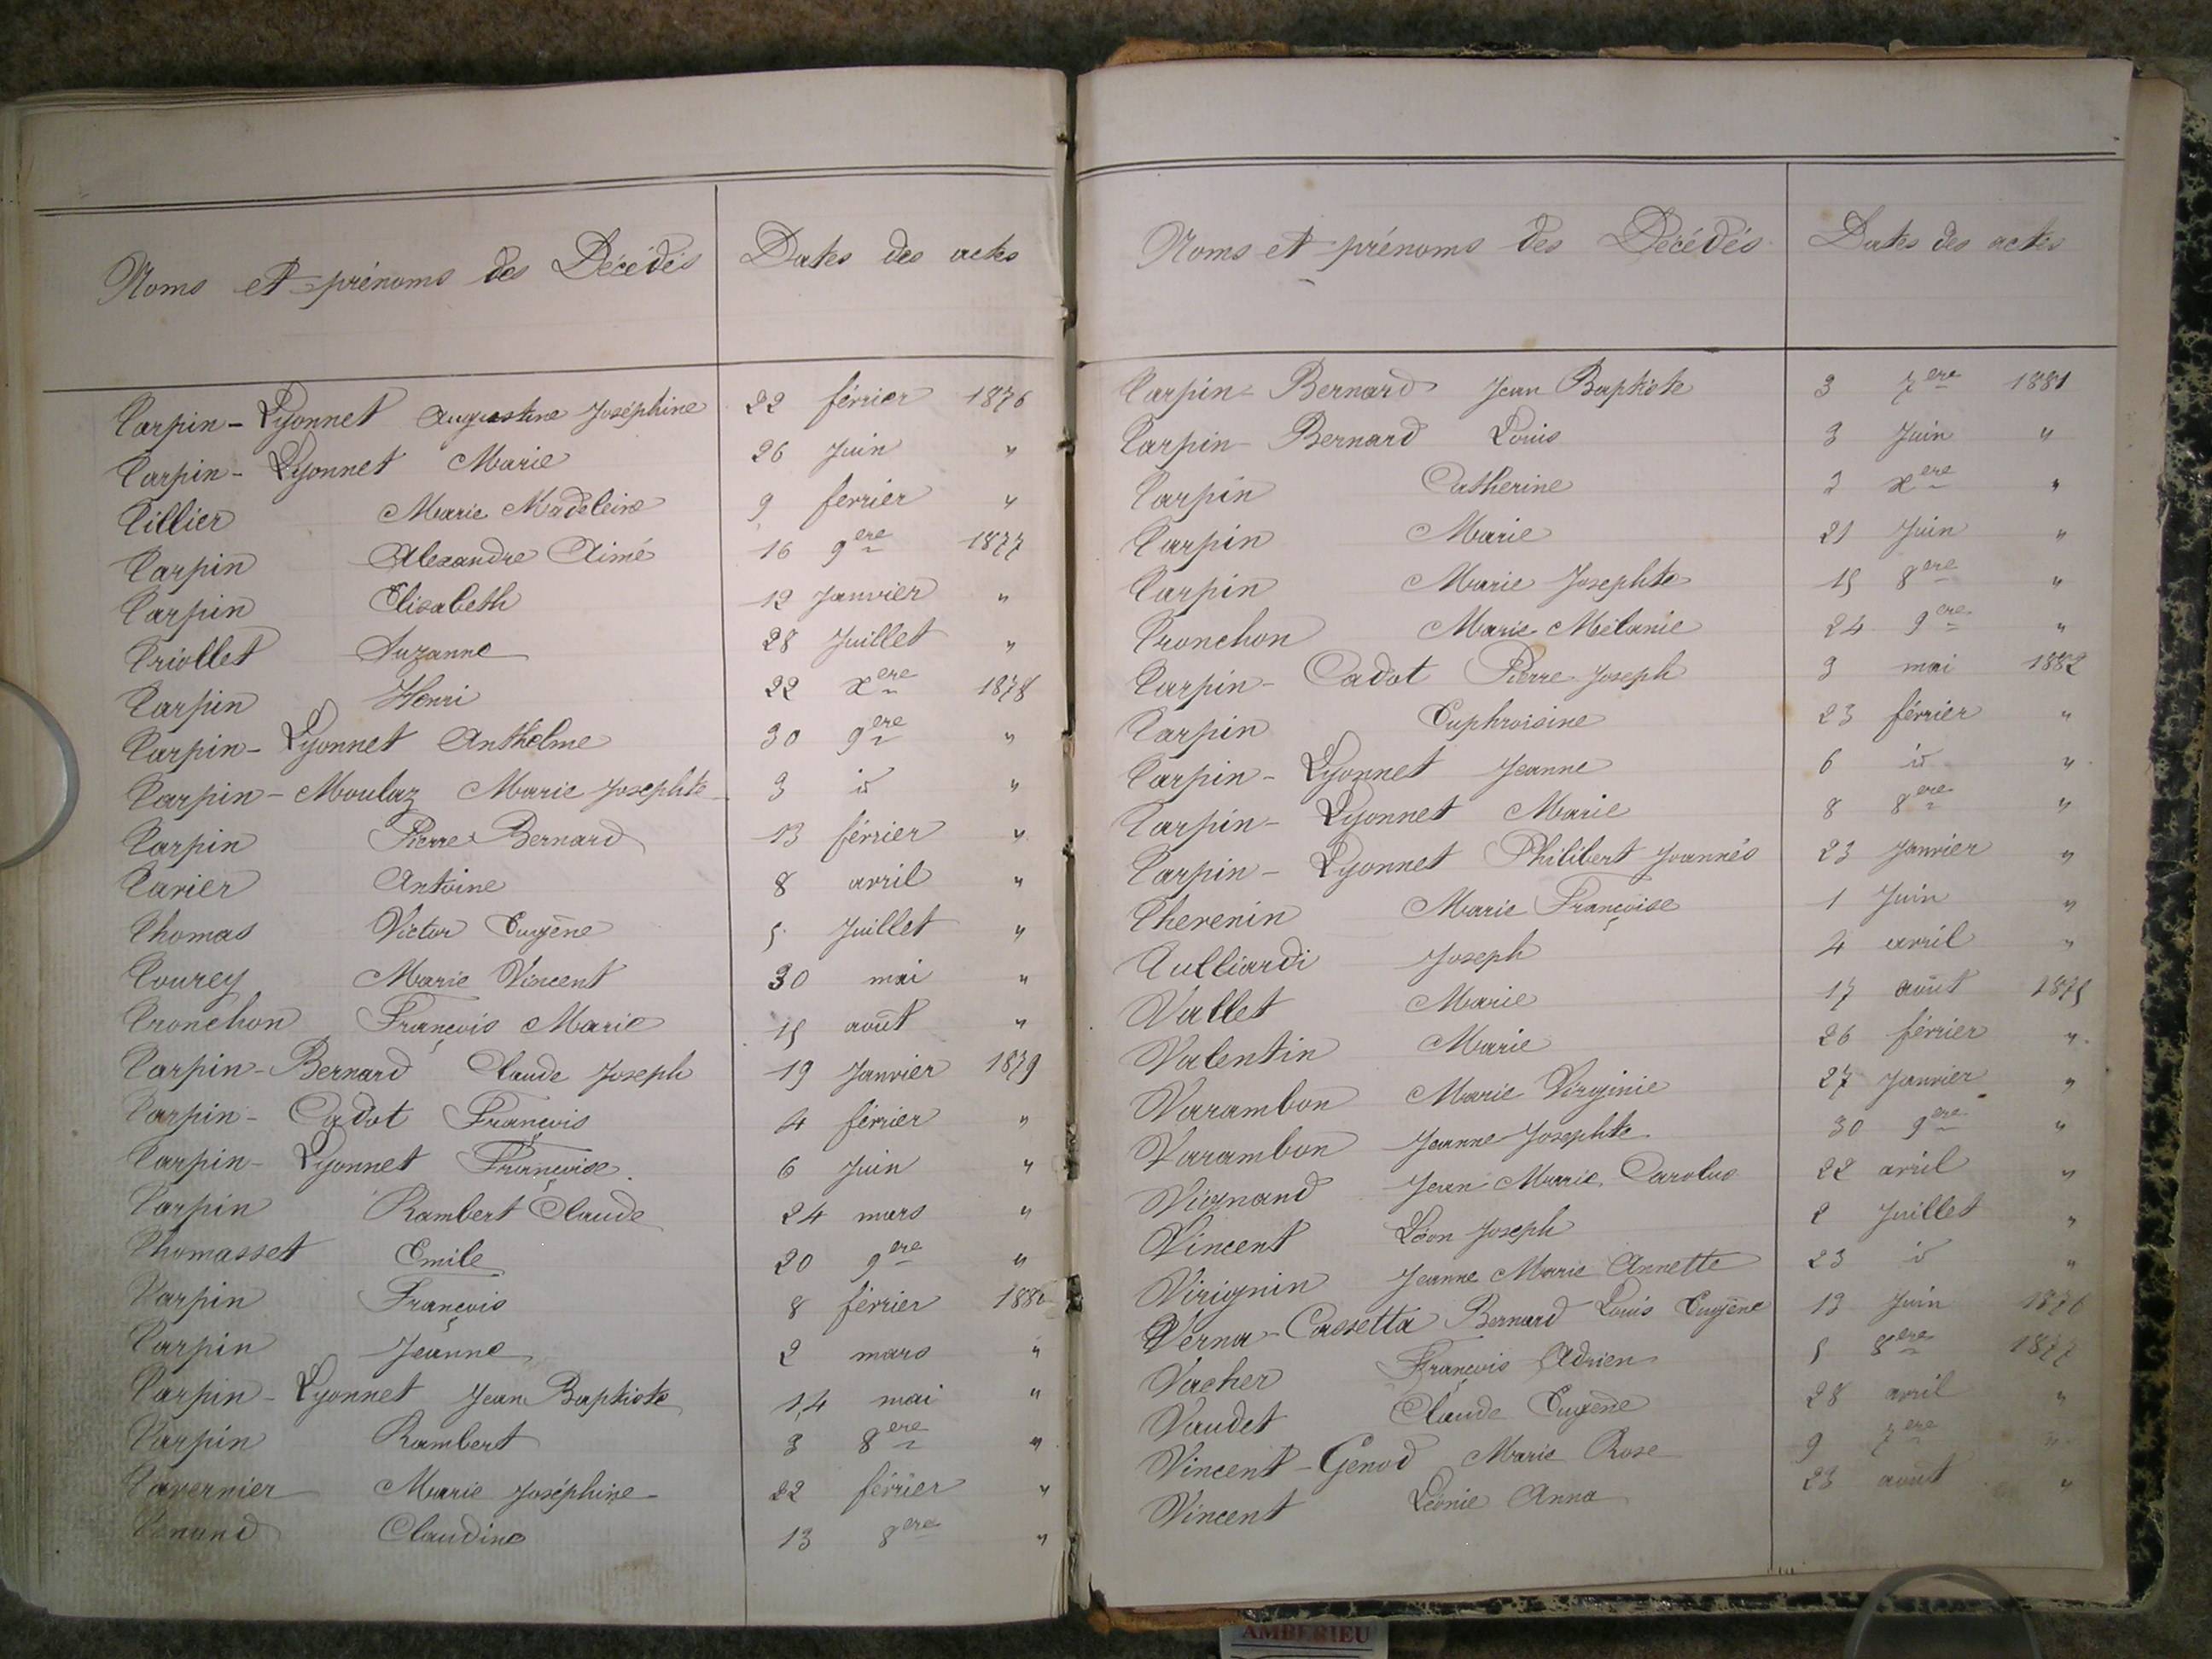 Noms et prénoms des Décédés Dates des actes
Tarpin-Lyonnet Augustine Joséphine 22 février 1876
Tarpin-Lyonnet Marie 26 Juin "
Tillier Marie Madeleine 9 fevrier "
Tarpin Alexandre Aimé 16 9ere 1877
Tarpin Elisabeth 12 Janvier "
Triollet Suzanne 28 Juillet "
Tarpin Henri 22 xere 1878
Tarpin-Lyonnet Anthelme 30 9ere "
Tarpin-Moulaz Marie Josephte 3 id "
Tarpin Pierre Bernard 13 février "
Tavier Antoine 8 avril "
Thomas Victor Eugène 5 Juillet "
Tourey Marie Vincent 30 mai "
Tronchon François Marie 15 août "
Tarpin-Bernard Claude Joseph 19 Janvier 1879
Tarpin-Cadot François 4 février "
Tarpin-Lyonnet Françoise 6 Juin "
Tarpin Rambert Claude 24 mars "
Thomasset Emile 20 9ere "
Tarpin François 8 février 1880
Tarpin Jeanne 2 mars "
Tarpin-Lyonnet Jean Baptiste 14 mai "
Tarpin Rambert 3 8ere "
Tavernier Marie Joséphine 22 février "
Tenand Claudine 13 8ere "
Noms et prénoms des Décédés Dates des actes
Tarpin-Bernard Jean Baptiste 3 7ere 1881
Tarpin-Bernard Louis 3 Juin "
Tarpin Catherine 2 xere "
Tarpin Marie 21 Juin "
Tarpin Marie Josephte 15 8ere "
Tronchon Marie Mélanie 24 9ere "
Tarpin-Cadot Pierre Joseph 3 mai 1882
Tarpin Euphroisine 23 février "
Tarpin-Lyonnet Jeanne 6 id "
Tarpin-Lyonnet Marie 8 8ere "
Tarpin-Lyonnet Philibert Joannès 23 Janvier "
Thevenin Marie Françoise 1 Juin "
Tulliardi Joseph 4 avril "
Vallet Marie 17 août 1875
Valentin Marie 26 février "
Varambon Marie Virginie 27 Janvier "
Varambon Jeanne Josephte 30 9ere "
Vignand Jean Marie Carolus 22 avril "
Vincent Léon Joseph 2 Juillet "
Virignin Jeanne Marie Annette 23 id "
Verna-Cassetta Bernard Louis Eugène 13 Juin 1876
Vacher François Adrien 5 8ere 1877
Vaudet Claude Eugène 28 avril "
Vincent-Genod Marie Rose 9 7ere "
Vincent Léonie Anna 23 août "
AMBERIEU